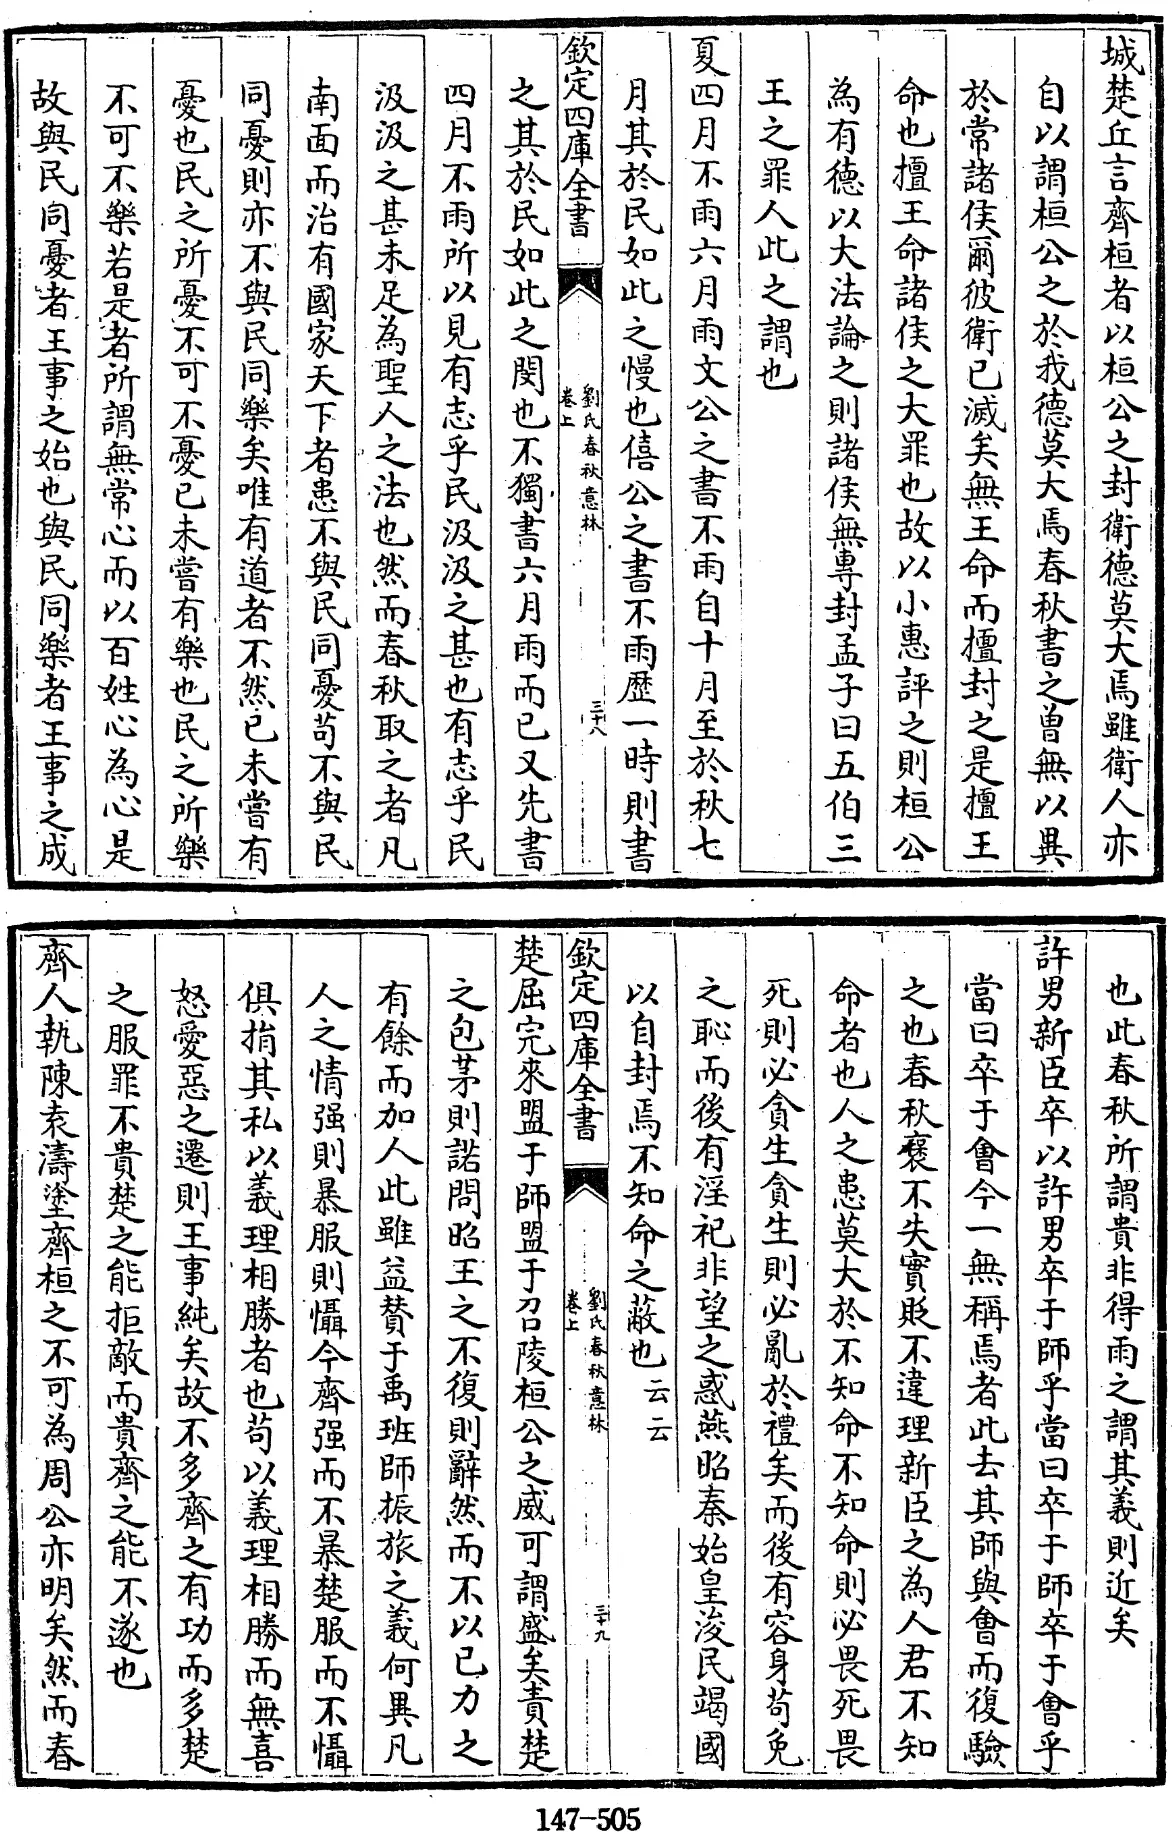 城楚丘言齊桓者以桓公之封衛德莫大焉雖衛人亦
自以謂桓公之於我德莫大焉春秋書之曽無以異
於常諸侯爾彼衛已滅矣無王命而擅封之是擅王
命也擅王命諸侯之大罪也故以小惠評之則桓公
為有德以大法論之則諸侯無專封孟子曰五伯三
王之罪人此之謂也
夏四月不雨六月雨文公之書不雨自十月至於秋七
月其於民如此之慢也僖公之書不雨歴一時則書
欽定四庫全書
劉氏春秋意林
卷上
三十八
之其於民如此之閔也不獨書六月雨而已又先書
四月不雨所以見有志乎民汲汲之甚也有志乎民
汲汲之甚未足為聖人之法也然而春秋取之者凡
南面而治有國家天下者患不與民同憂茍不與民
同憂則亦不與民同樂矣唯有道者不然已未嘗有
憂也民之所憂不可不憂已未嘗有樂也民之所樂
不可不樂若是者所謂無常心而以百姓心為心是
故與民同憂者王事之始也與民同樂者王事之成
也此春秋所謂貴非得雨之謂其義則近矣
許男新臣卒以許男卒于師乎當曰卒于師卒于會乎
當曰卒于會今一無稱焉者此去其師與會而復驗
之也春秋襃不失實貶不違理新臣之為人君不知
命者也人之患莫大於不知命不知命則必畏死畏
死則必貪生貪生則必亂於禮矣而後有容身茍免
之恥而後有淫祀非望之惑燕昭秦始皇浚民竭國
以自封焉不知命之蔽也云云
欽定四庫全書
劉氏春秋意林
卷上
三十九
楚屈完來盟于師盟于召陵桓公之威可謂盛矣責楚
之包茅則諾問昭王之不復則辭然而不以已力之
有餘而加人此雖益賛于禹班師振旅之義何異凡
人之情强則暴服則懾今齊强而不暴楚服而不懾
俱捐其私以義理相勝者也茍以義理相勝而無喜
怒愛惡之遷則王事純矣故不多齊之有功而多楚
之服罪不貴楚之能拒敵而貴齊之能不遂也
齊人執陳袁濤塗齊桓之不可為周公亦明矣然而春
147-505